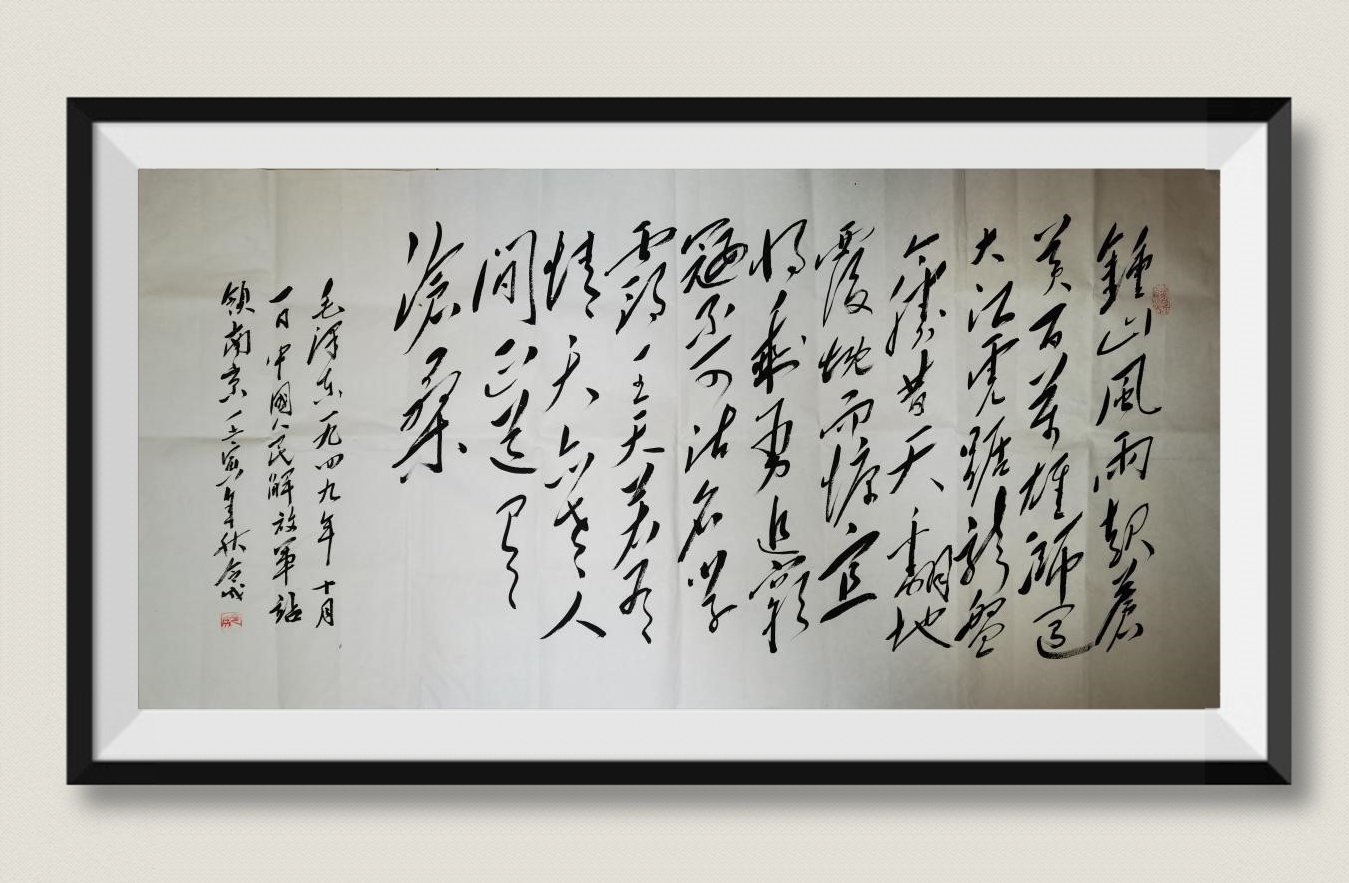 鍾山風雨起蒼
黃百萬雄師過
大江虎踞龍盤
今勝昔天翻地
覆慨而慷宜
將剩勇追窮
寇不可沽名學
霸王天若有
情天亦老人
間正道是
滄桑
毛澤東一九四九年十月
一日中國人民解放軍站
領南京壬寅年秋